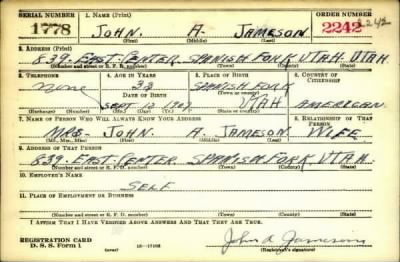 SERIAL NUMBER 1. NAME (Print) ORDER NUMBER
1778 JOHN A. JAMESON 2242 2242
(First) (Middle) (Last)
2. ADDRESS (Print)
839-EAST-CENTER SPANISH FORK UTAH. UTAH.
(Number and street or R. F. D. number) (Town) (County) (State)
3. TELEPHONE 4. AGE IN YEARS 5. PLACE OF BIRTH 6. COUNTRY OF CITIZENSHIP
None 33 SPANISH FORK
DATE OF BIRTH (Town or county)
SEPT 12 1907 UTAH AMERICAN.
(Exchange) (Number) (Mo.) (Day) (Yr.) (State or country)
7. NAME OF PERSON WHO WILL ALWAYS KNOW YOUR ADDRESS 8. RELATIONSHIP OF THAT PERSON
MRS- JOHN A. JAMESON WIFE
(Mr., Mrs., Miss) (First) (Middle) (Last)
9. ADDRESS OF THAT PERSON
839-EAST-CENTER SPANISH FORK UTAH.
(Number and street or R. F. D. number) (Town) (County) (State)
10. EMPLOYER'S NAME
SELF
11. PLACE OF EMPLOYMENT OR BUSINESS
(Number and street or R. F. D. number) (Town) (County) (State)
I AFFIRM THAT I HAVE VERIFIED ABOVE ANSWERS AND THAT THEY ARE TRUE.
REGISTRATION CARD
D. S. S. FORM 1 John A Jameson
(Registrant's signature)